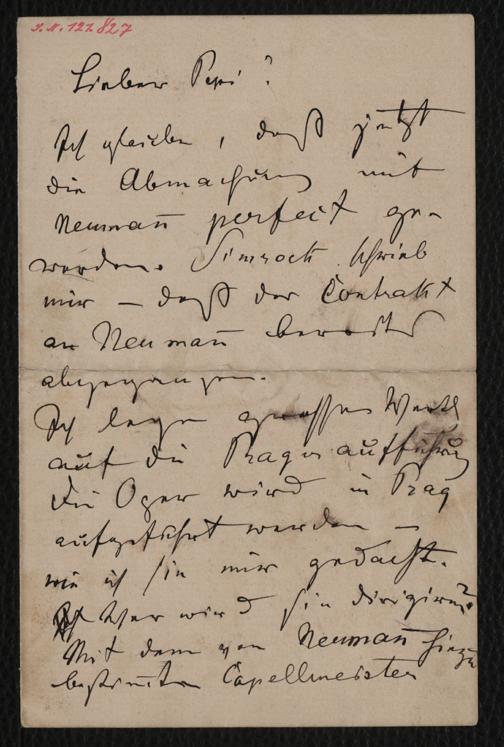 I.N. 121.827
Lieber Pepi!
Ich glaube, daß jetzt
die Abmachung mit
Neumañ perfect ge-
worden. Simrock schrieb
mir – daß der Contrakt
an Neumañ bereits
abgegangen.
Ich lege grossen Werth
auf die Prager aufführung
Die Oper wird in Prag
aufgeführt werden –
wie ich sie mir gedacht.
Wer wird sie dirigiren?
Mit dem von Neumañ hiezu
bestimten Capellmeister